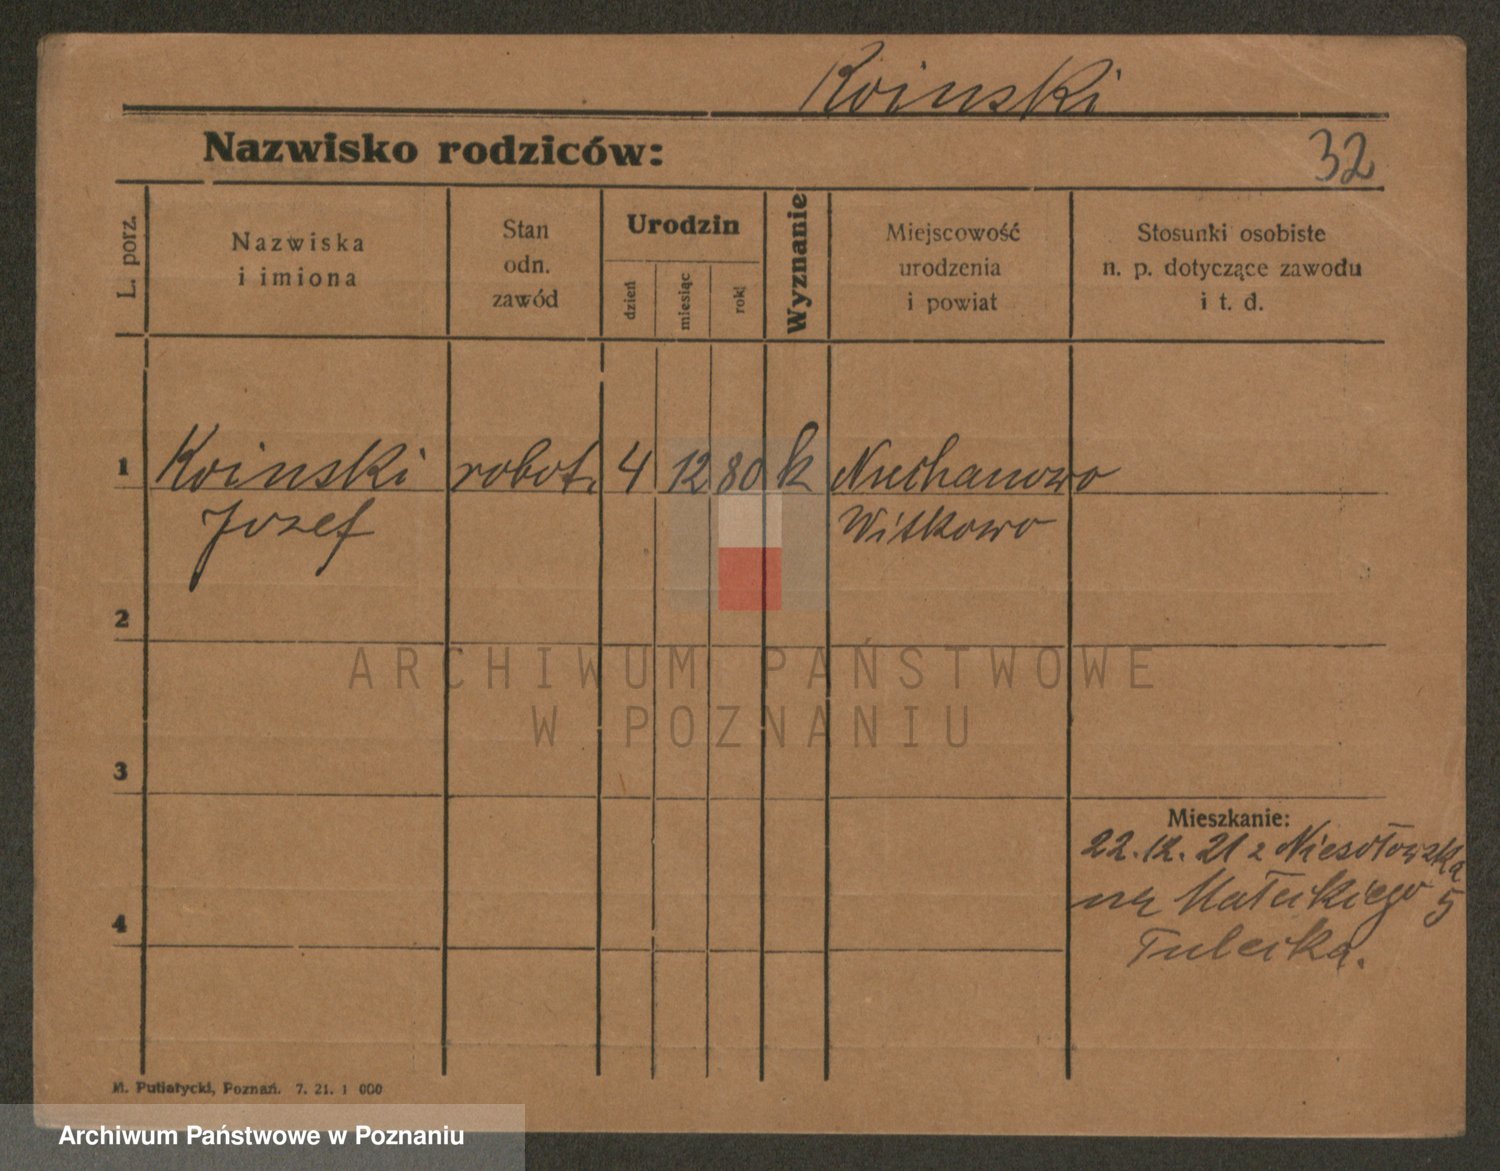 Koinski
Nazwisko rodziców:
32
L. porz.
Nazwiska
i imiona
Stan
odn.
zawód
Urodzin
dzień
miesiąc
rok
Wyznanie
Miejscowość
urodzenia
i powiat
Stosunki osobiste
n. p. dotyczące zawodu
i t. d.
1 Koinski robot. 4 12 80 k Niechanowo
Jozef Witkowo
2
ARCHIWUM PAŃSTWOWE
W POZNANIU
3
Mieszkanie:
22.12.21 z
na Małeckiego 5
4
M. Putiatycki, Poznań. 7. 21. 1 000
Archiwum Państwowe w Poznaniu